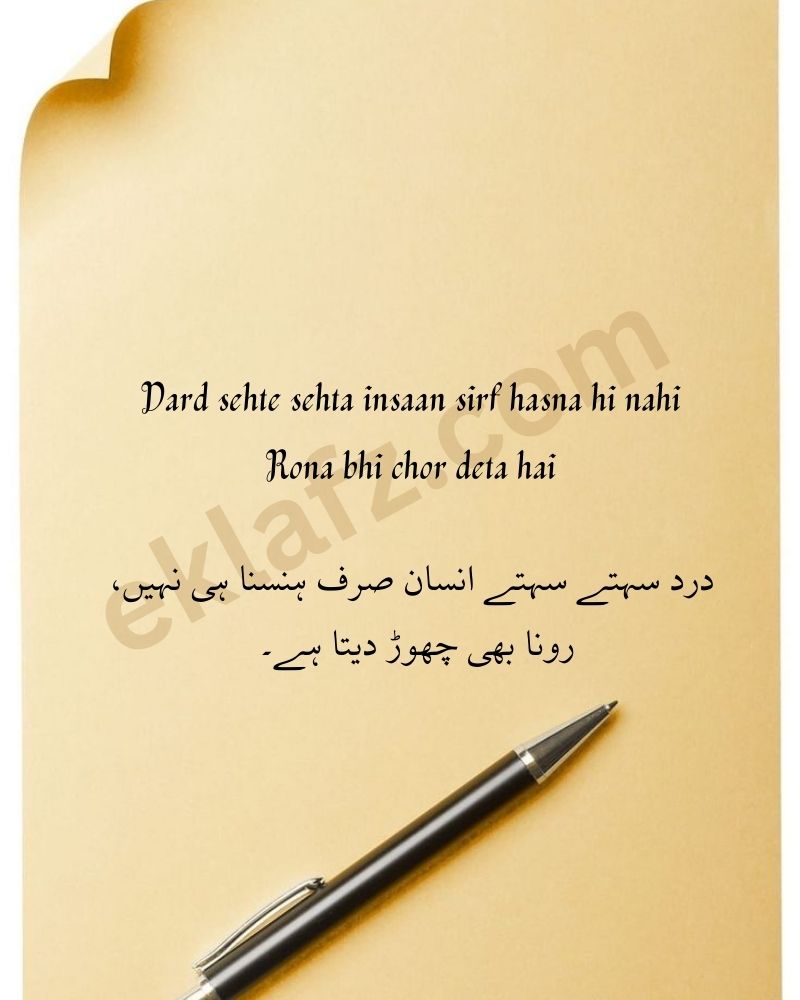 Dard sehte sehta insaan sirf hasna hi nahi
Rona bhi chor deta hai
درد سہتے سہتے انسان صرف ہنسنا ہی نہیں،
رونا بھی چھوڑ دیتا ہے۔
eklafz.com